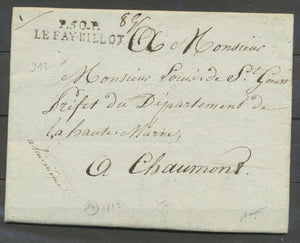 P.50.P.
LE FAY-BILLOT
A Monsieur
Monsieur de St. Genest
Préfet du Département de
la haute Marne,
A Chaumont.